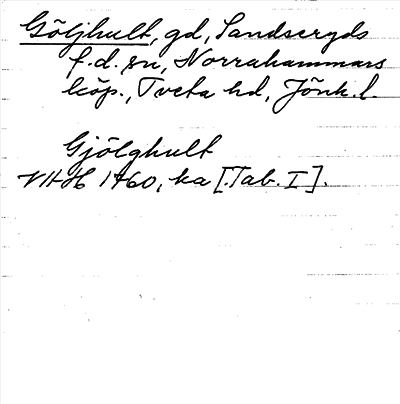 Göljhult, gd, Sandseryds
f.d. sn, Norrahammars
köp., Tveta hd, Jönk.l.
Gjölghult
1760, ka [.Tab. I].